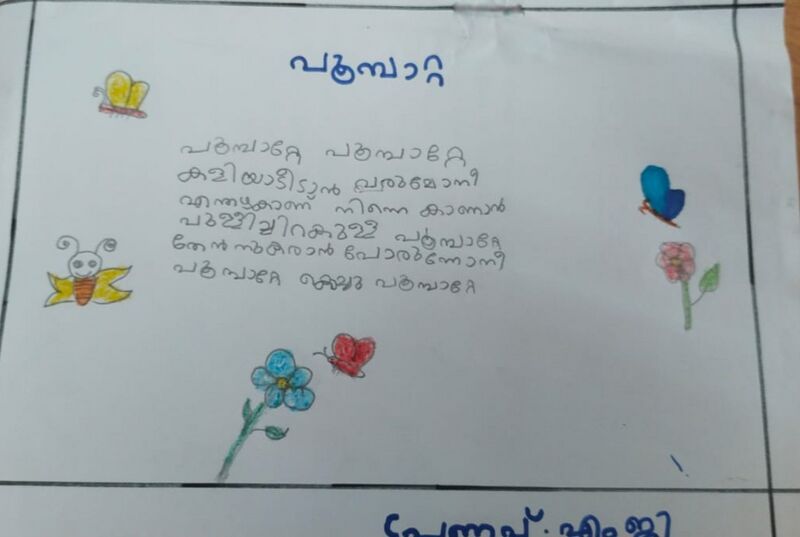 പൂമ്പാറ്റ
പൂമ്പാറ്റേ പൂമ്പാറ്റേ
കളിയാടീടാൻ വരുമോനീ
എന്തഴകാണ് നിന്നെ കാണാൻ
പുള്ളിച്ചിറകുള്ള പൂമ്പാറ്റേ
തേൻനുകരാൻ പോരുന്നോനീ
പൂമ്പാറ്റേ കൊച്ചു പൂമ്പാറ്റേ
പ്രണവ്. എം.ജി